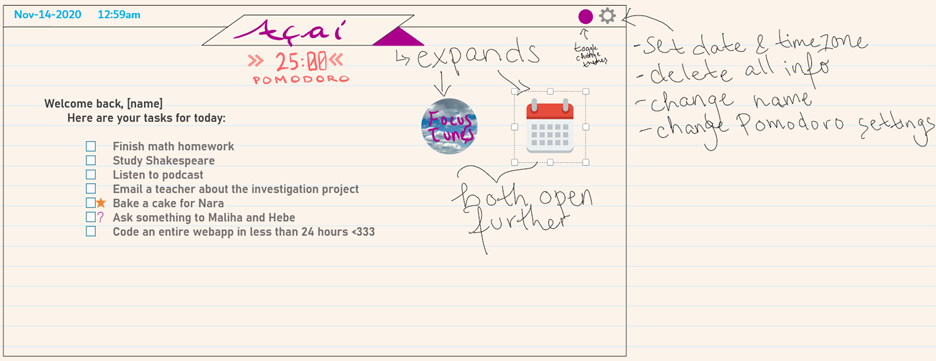 Nov-14-2020 12:59am
Açaí
>> 25:00 <<
POMODORO
↳ expands
toggle
change
- set date & timezone
- delete all info
- change name
- change Pomodoro settings
Welcome back, [name]
Here are your tasks for today:
Finish math homework
Study Shakespeare
Listen to podcast
Email a teacher about the investigation project
Bake a cake for Nara
? Ask something to Maliha and Hebe
Code an entire webapp in less than 24 hours <333
Focus
Tunes
both open
further